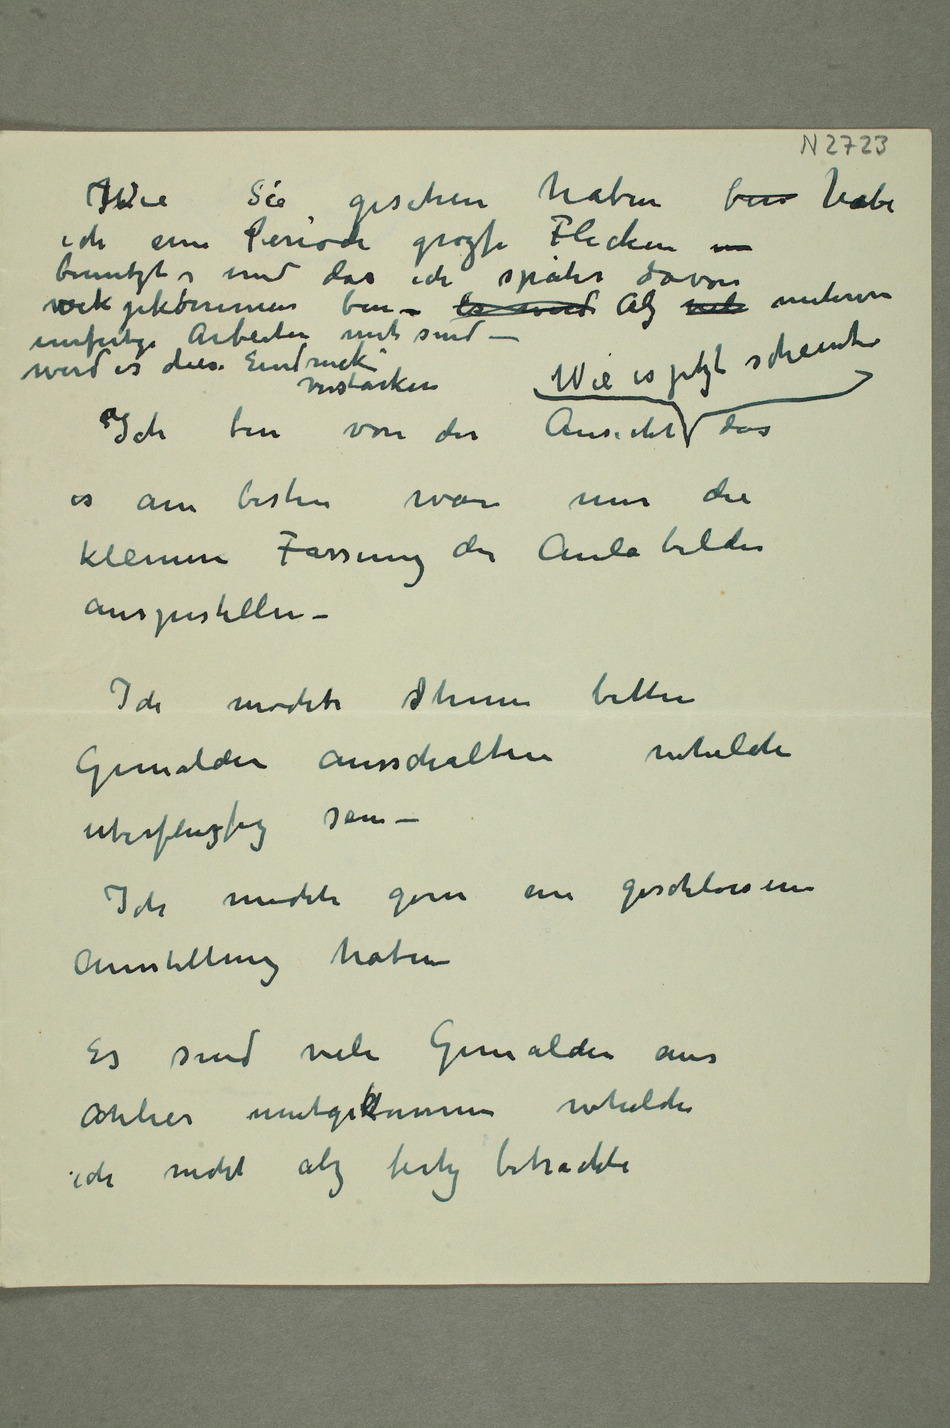 N 2723
Wie Sie gesehen haben bin habe
ich eine Periode grozse Flecken
benutzt, und das ich später davon
wekgekommen bin – Es wird Alz mit meherere
unfertige Arbeiten mit sind –
wird es diese Eindruck
verstärken
Wie es jetzt scheint
Ich bin von der Ansicht das
es am besten wäre nur die
kleinere Fassung der Aulabilder
auszustellen –
Ich möchte Ihnen bitten
Gemälden ausschalten whelche
überfluzsig sein –
Ich möchte gern eine geschlossene
Ausstellung haben
Es sind viele Gemälden aus
Atelier mitgekommen whelche
ich nicht alz fertig betrachte